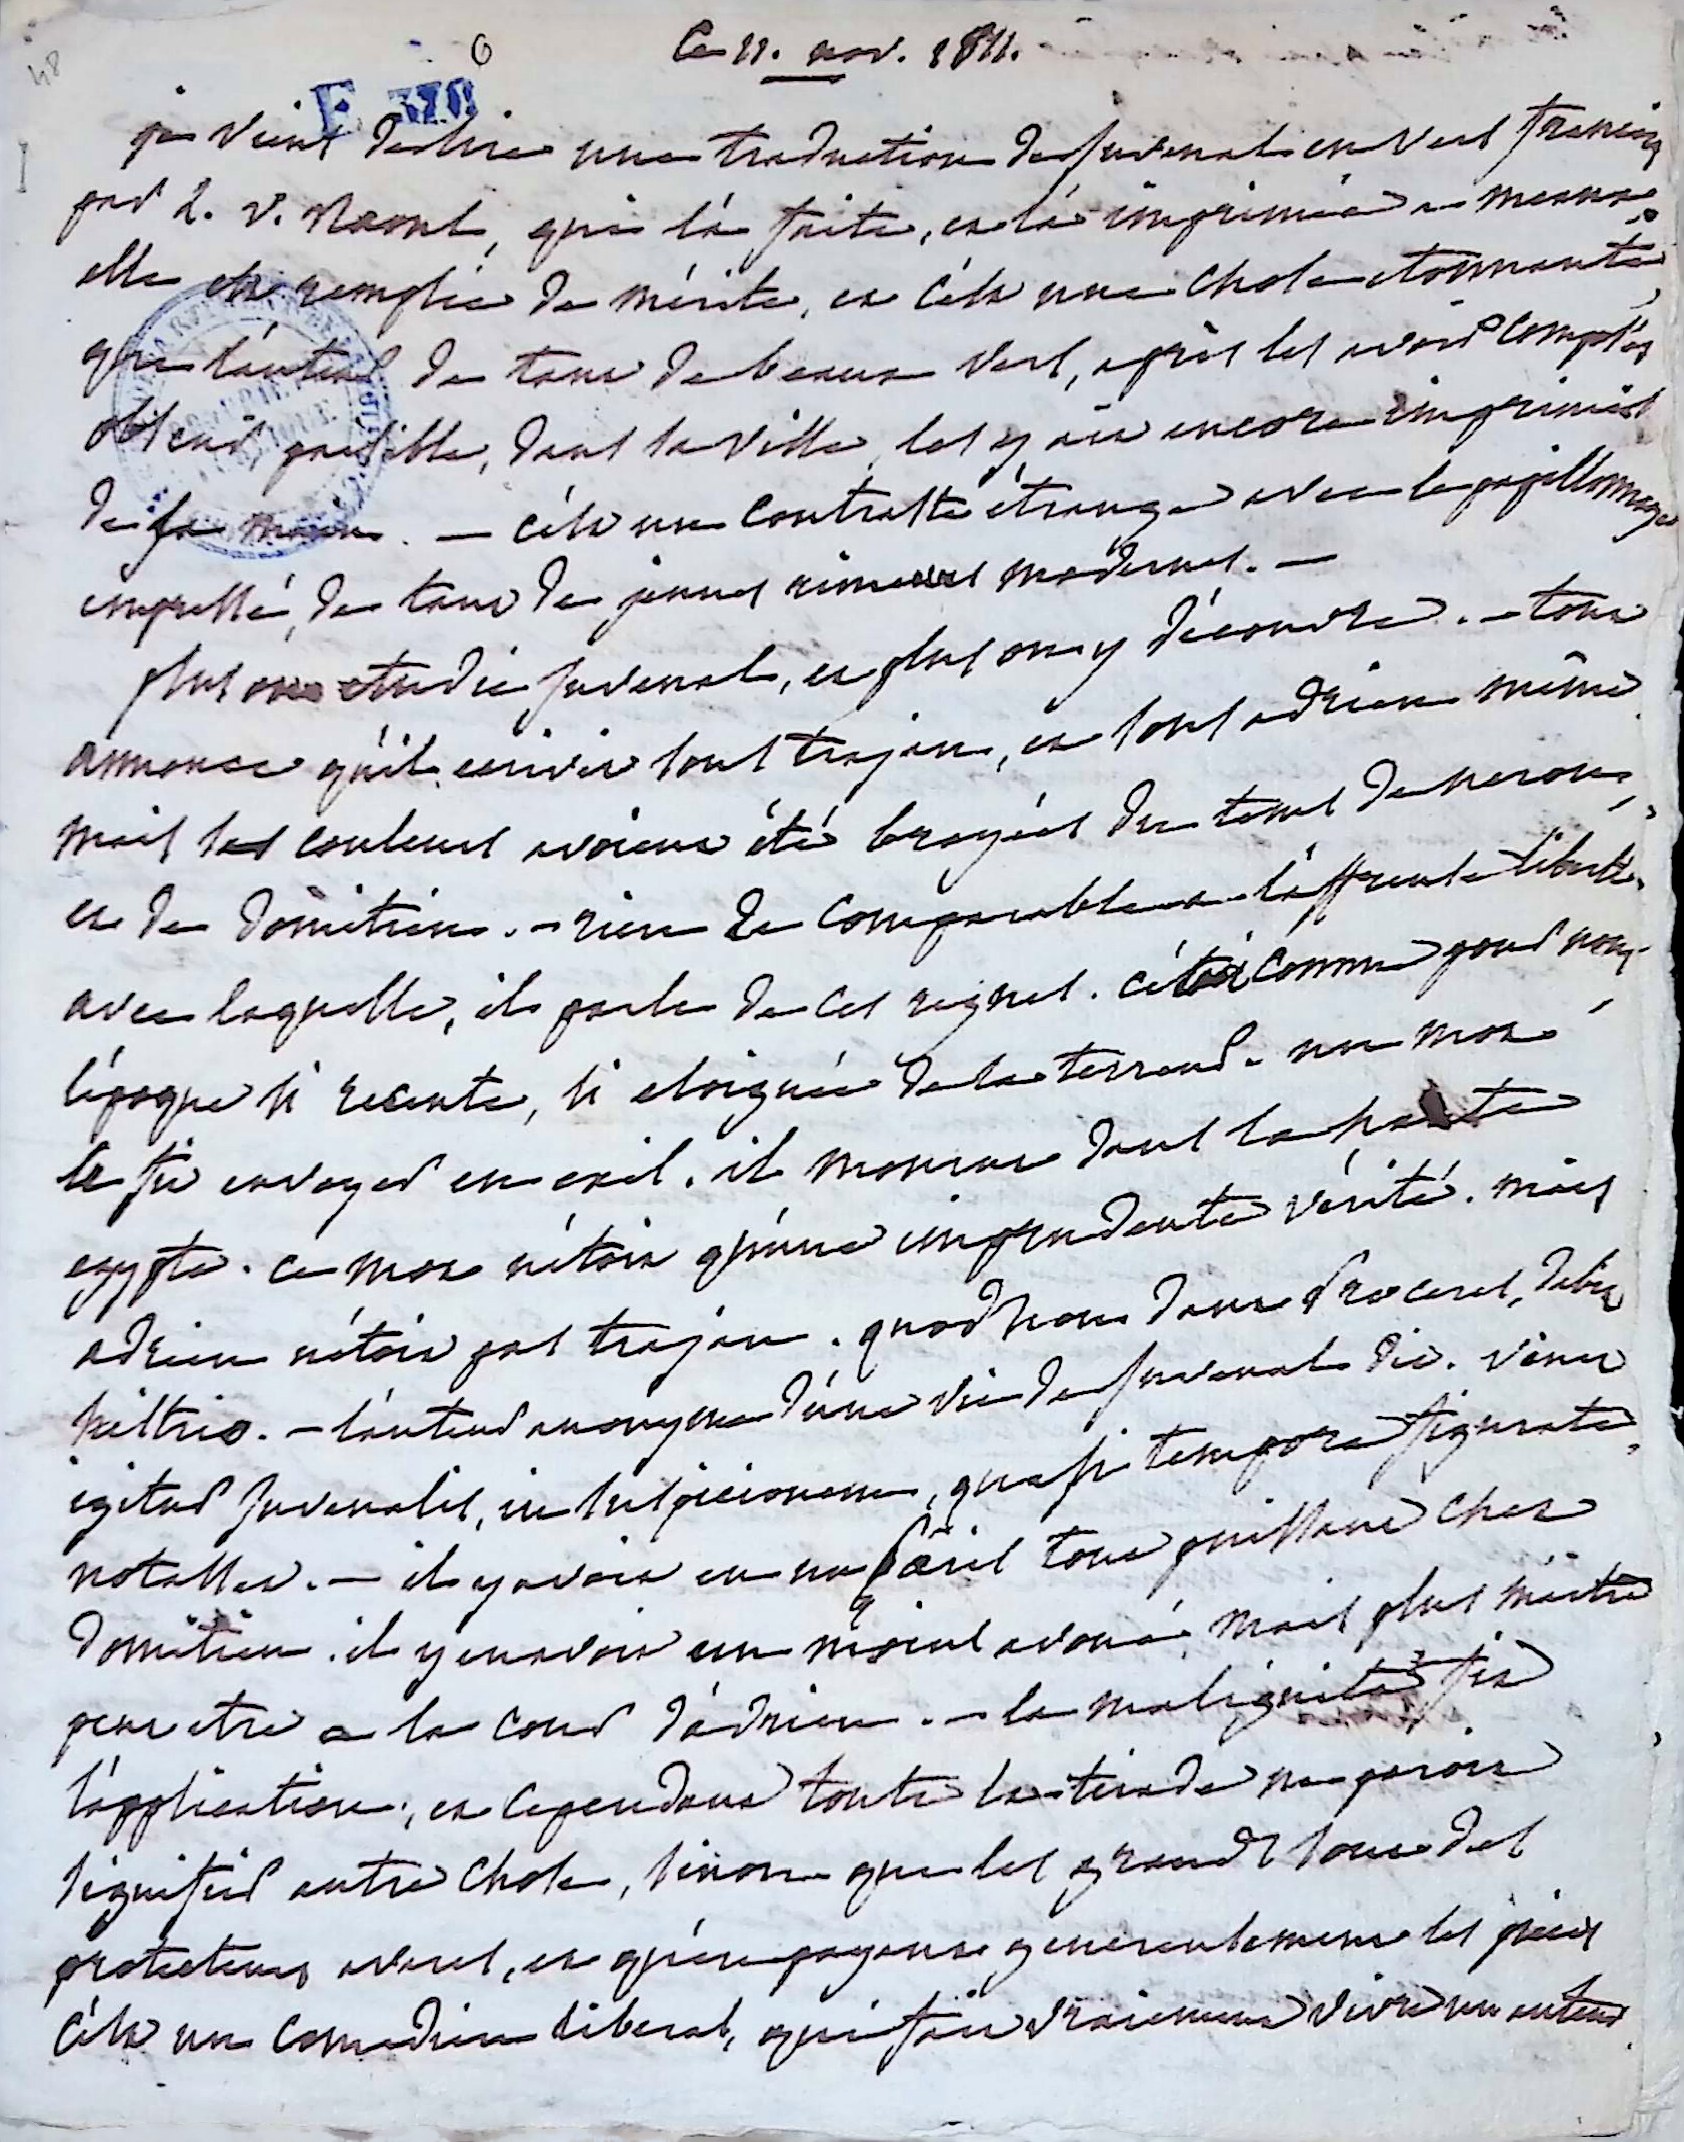 48
6
Ce 11. nov. 1811.
E 378
je viens de lire une traduction de juvenal en vers français
par L. V. Raoul, qui l'a faite, et l'a imprimée a meaux.
elle est remplie de mérite, et c'est une chose etonnante,
que l'auteur de tant de beaux vers, après les avoir composés
paisible, dans sa ville, les y ait encore imprimés
de sa main. — c'est un contraste étrange avec le papillonnage
empressé, de tant de jeunes rimeurs modernes. —
plus on etudie juvenal, et plus on y découvre. — tout
annonce qu'il ecrivit sous trajan, et sous adrien même
mais ses couleurs avoient été broyées du tems de neron,
et de domitien. — rien de comparable a l'affreuse liberté,
avec laquelle, il parle de ces regnes. c'étoit comme pour nous
l'époque si recente, si eloignée de la terreur. un mot
le fit envoyer en exil. il mourut dans la haute
egypte. ce mot n'étoit qu'une imprudente vérité. mais
adrien n'étoit pas trajan. quod non dant proceres, dabit
histrio. — l'auteur anonyme d'une vie de juvenal dit. venit
igitur juvenalis, in suspicionem, quasi tempora figurate
notasset. — il y avoit eu un pâris tout puissant chez
domitien. il y en avoit un moins avoué, mais plus maitre
peut etre a la cour d'adrien. — la malignité fit
l'application, et cependant toute la tirade ne paroit
signifier autre chose, sinon que les grands sont des
protecteurs avares, et qu'en payant genereusement les pieces
c'est un comedien liberal, qui fait vraiment vivre un auteur.